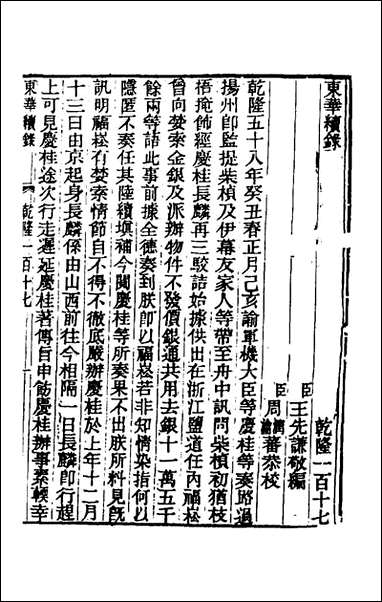 東華續錄
乾隆一百十七
臣王先謙敬編
臣周潤蕃周瀹蕃恭校
乾隆五十八年癸丑春正月己亥諭軍機大臣等慶桂等奏路過
揚州卽監提柴楨及伊幕友家人等帶至舟中訊問柴楨初猶枝
梧掩飾經慶桂長麟再三駁詰始據供出在浙江鹽道任內福崧
曾向婪索金銀及派辦物件不發價銀通共用去銀十一萬五千
餘兩等語此事前據全德奏到朕卽以福崧若非知情染指何以
隱匿不奏任其陸續塡補今閱慶桂等所奏果不出朕所料見旣
訊明福崧有婪索情節自不得不徹底嚴辦慶桂於上年十二月
十三日由京起身長麟係由山西前往今相隔一日長麟卽行趕
上可見慶桂途次行走遲延慶桂著傳旨申飭慶桂辦事素輭幸
東華續錄 乾隆一百十七 一